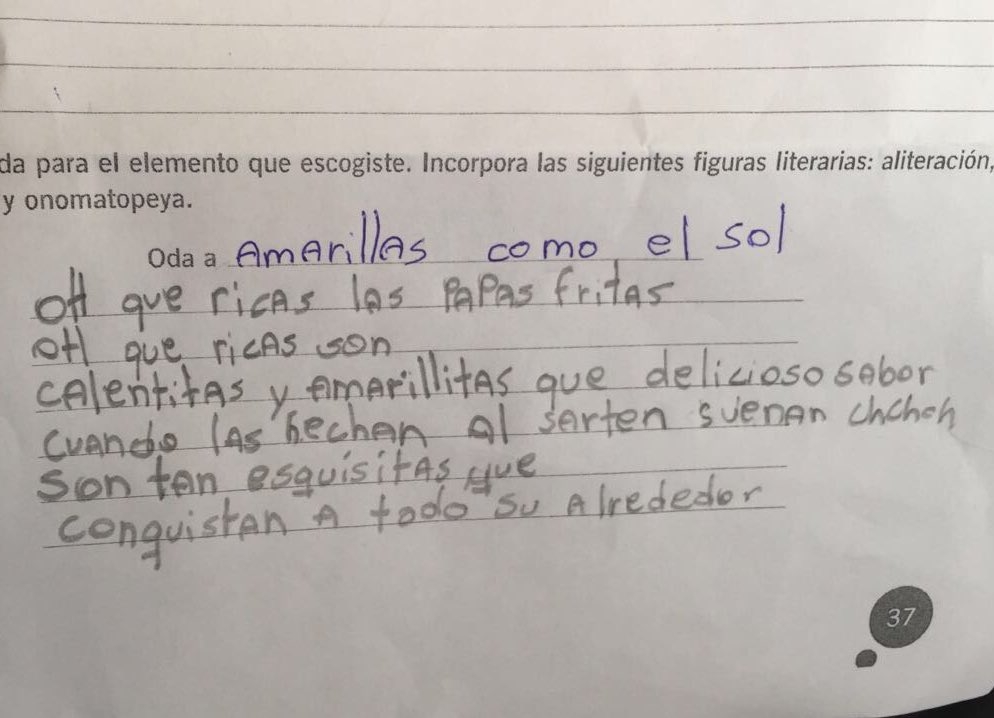 da para el elemento que escogiste. Incorpora las siguientes figuras literarias: aliteración,
y onomatopeya.
Oda a Amarillas como el sol
OH que ricas las papas fritas
OH que ricas son
calentitas y amarillitas que delicioso sabor
cuando las hechan al sarten suenan chchch
son tan esquisitas que
conquistan a todo su alrededor
37